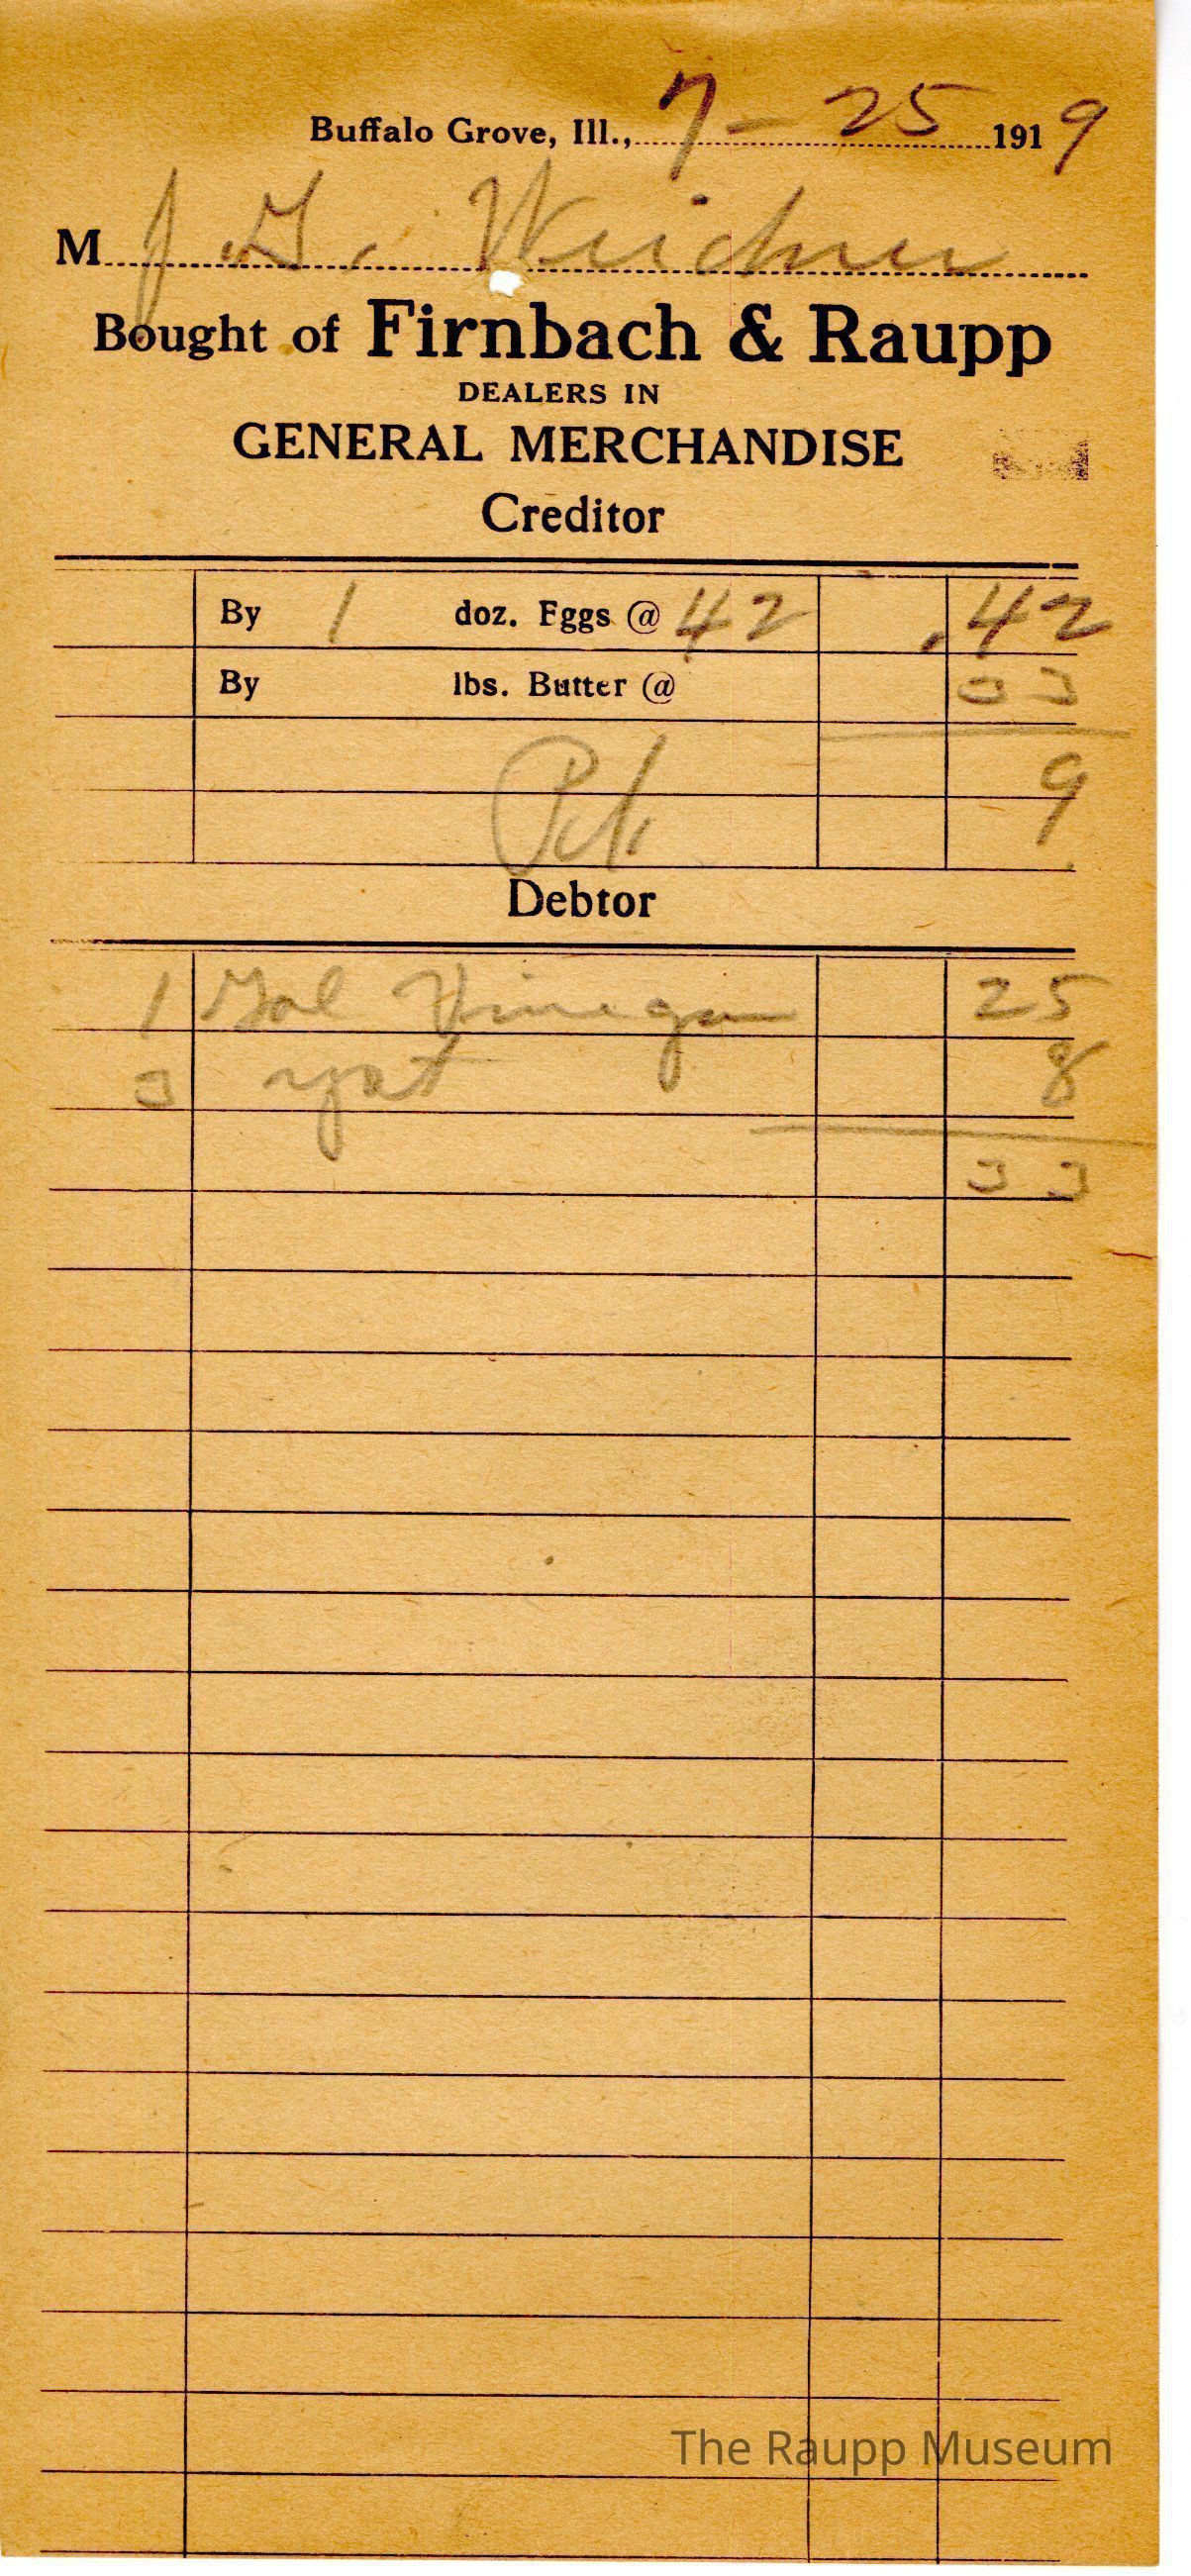 Buffalo Grove, Ill., 7 - 25 1919
M J. G. Weidner
Bought of Firnbach & Raupp
DEALERS IN
GENERAL MERCHANDISE
Creditor
By 1 doz. Eggs @ 42 .42
By lbs. Butter @ 33
Pd. 9
Debtor
1 Gal Vinegar 25
3 yst 8
33
The Raupp Museum